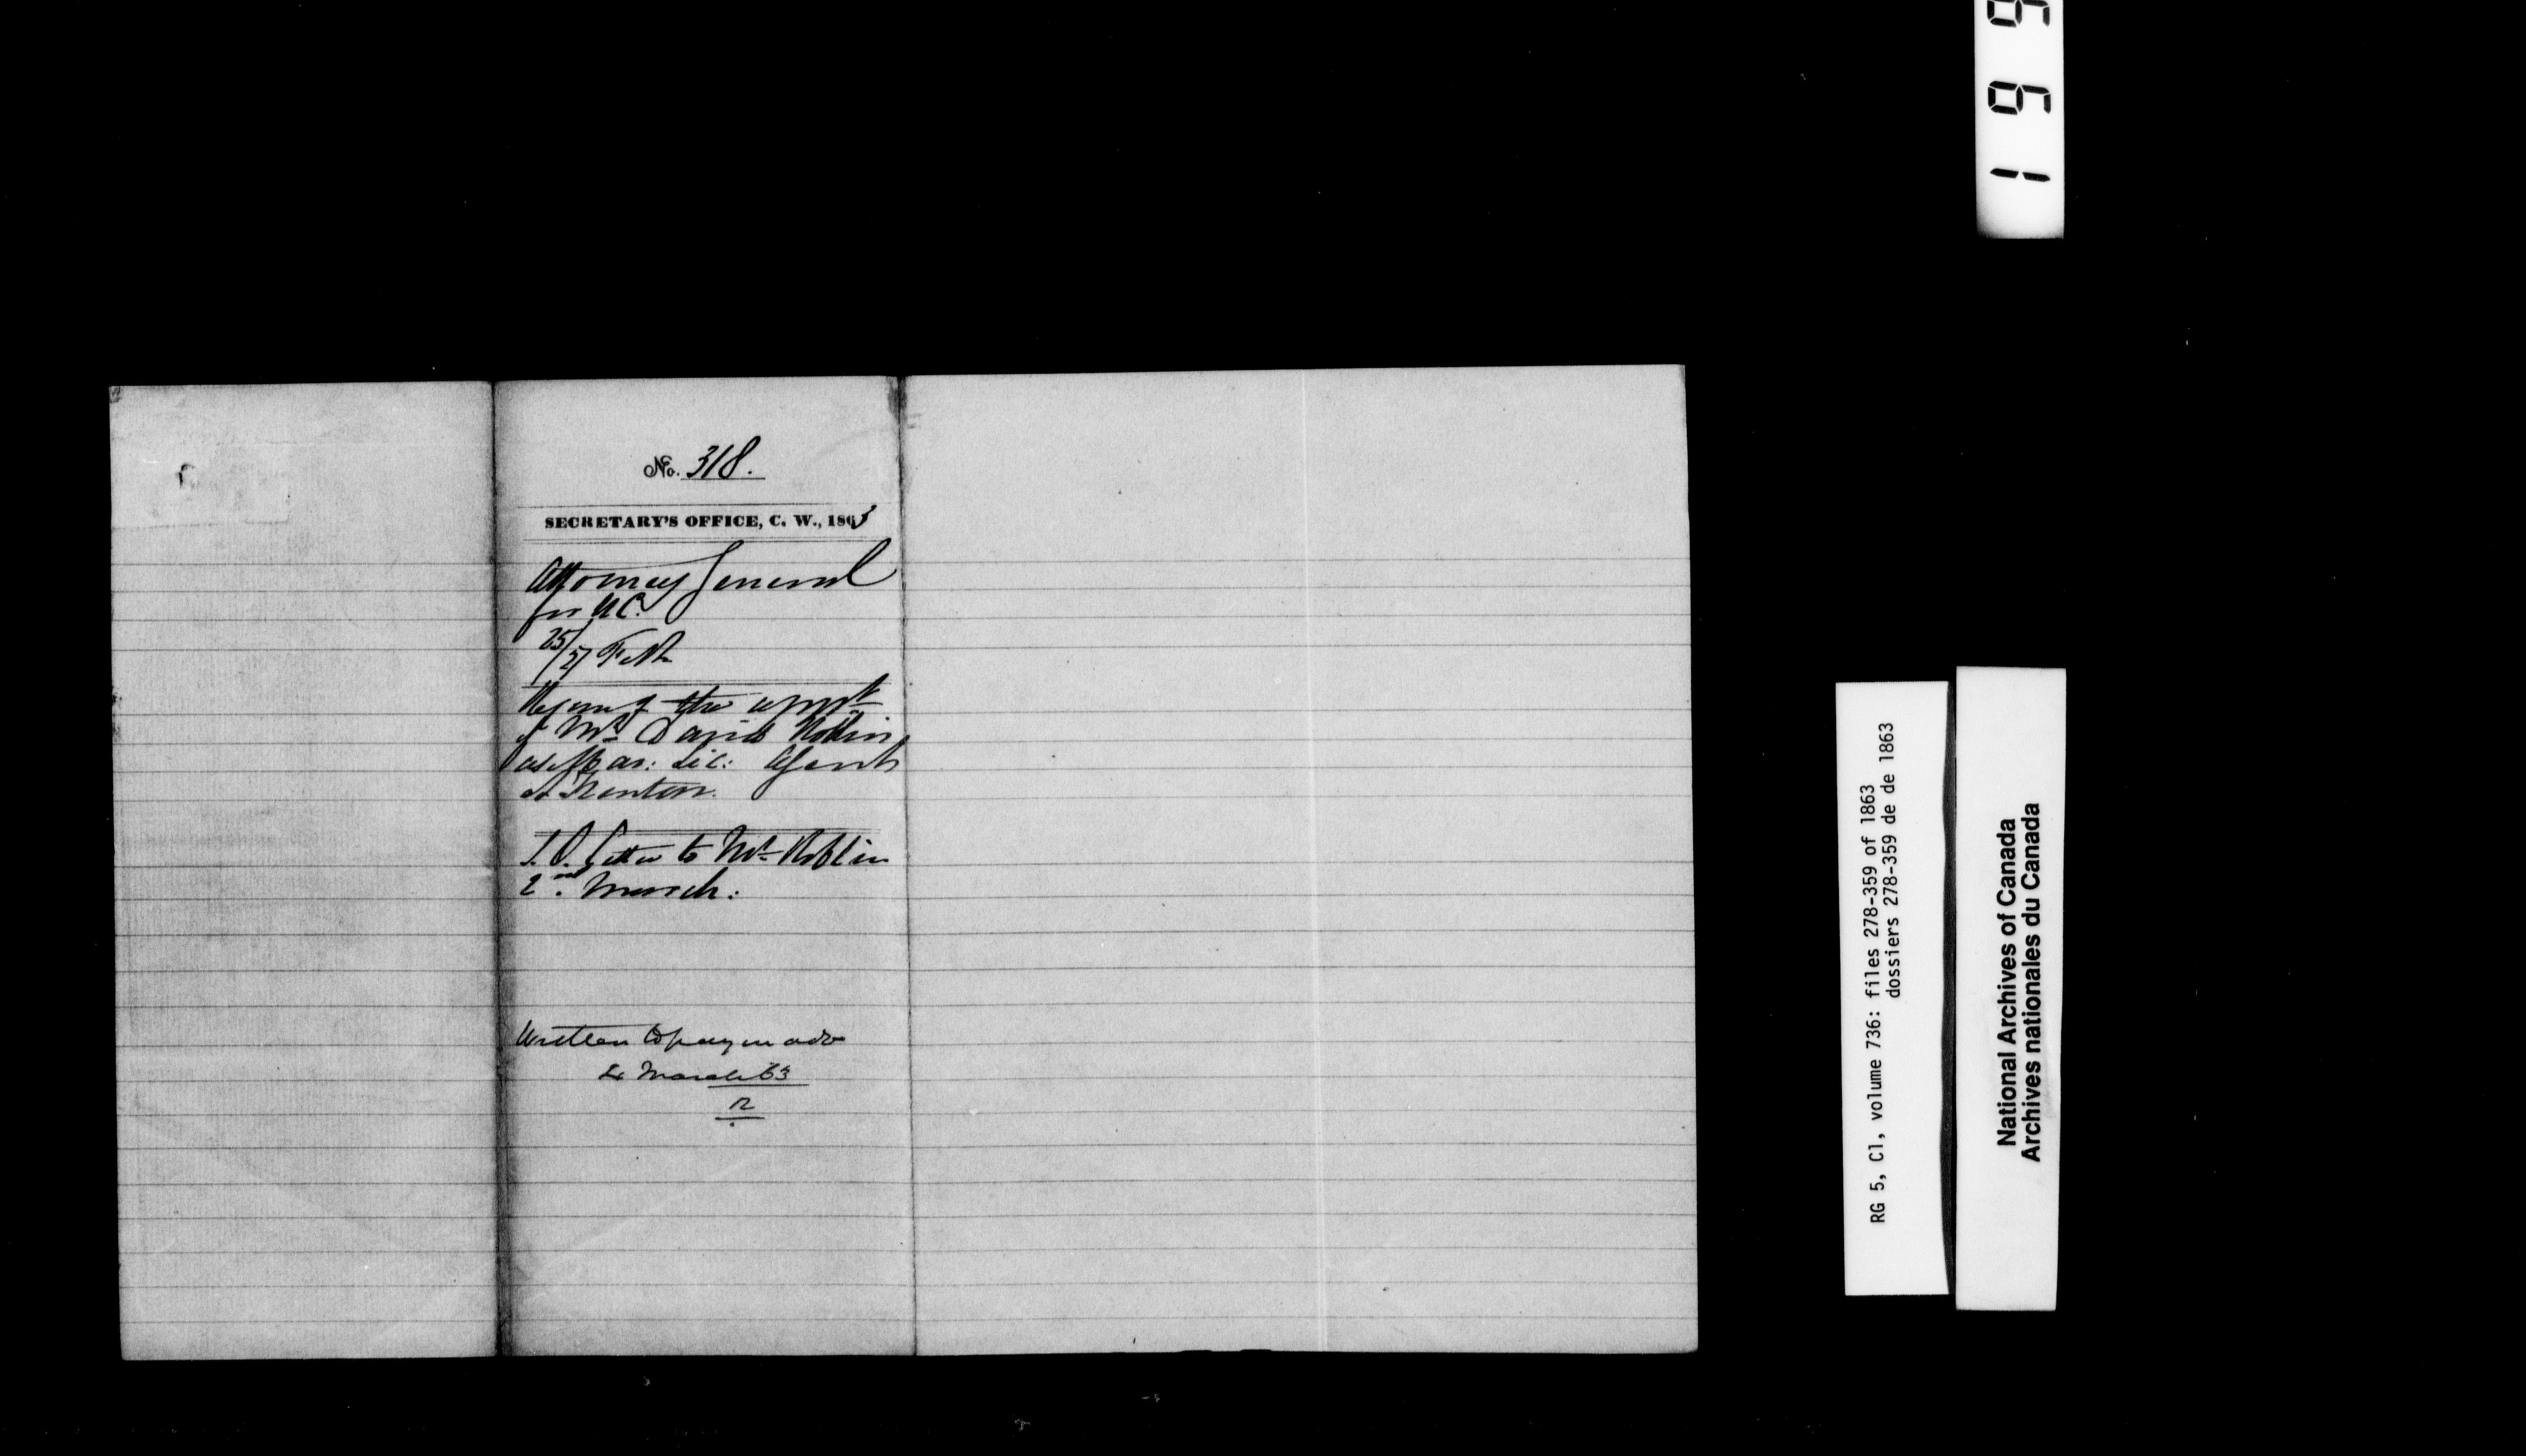 No. 318.
SECRETARY'S OFFICE, C. W., 1863
Attorney General
for U.C.
25/27 Feb
the appt
of Mr David Roblin
as Mar: Lic: Agent
at Trenton.
Letter to Mr Roblin
2nd March:
Written
2 March 63
1 9 9
RG 5, C1, volume 736: files 278-359 of 1863
dossiers 278-359 de de 1863
National Archives of Canada
Archives nationales du Canada